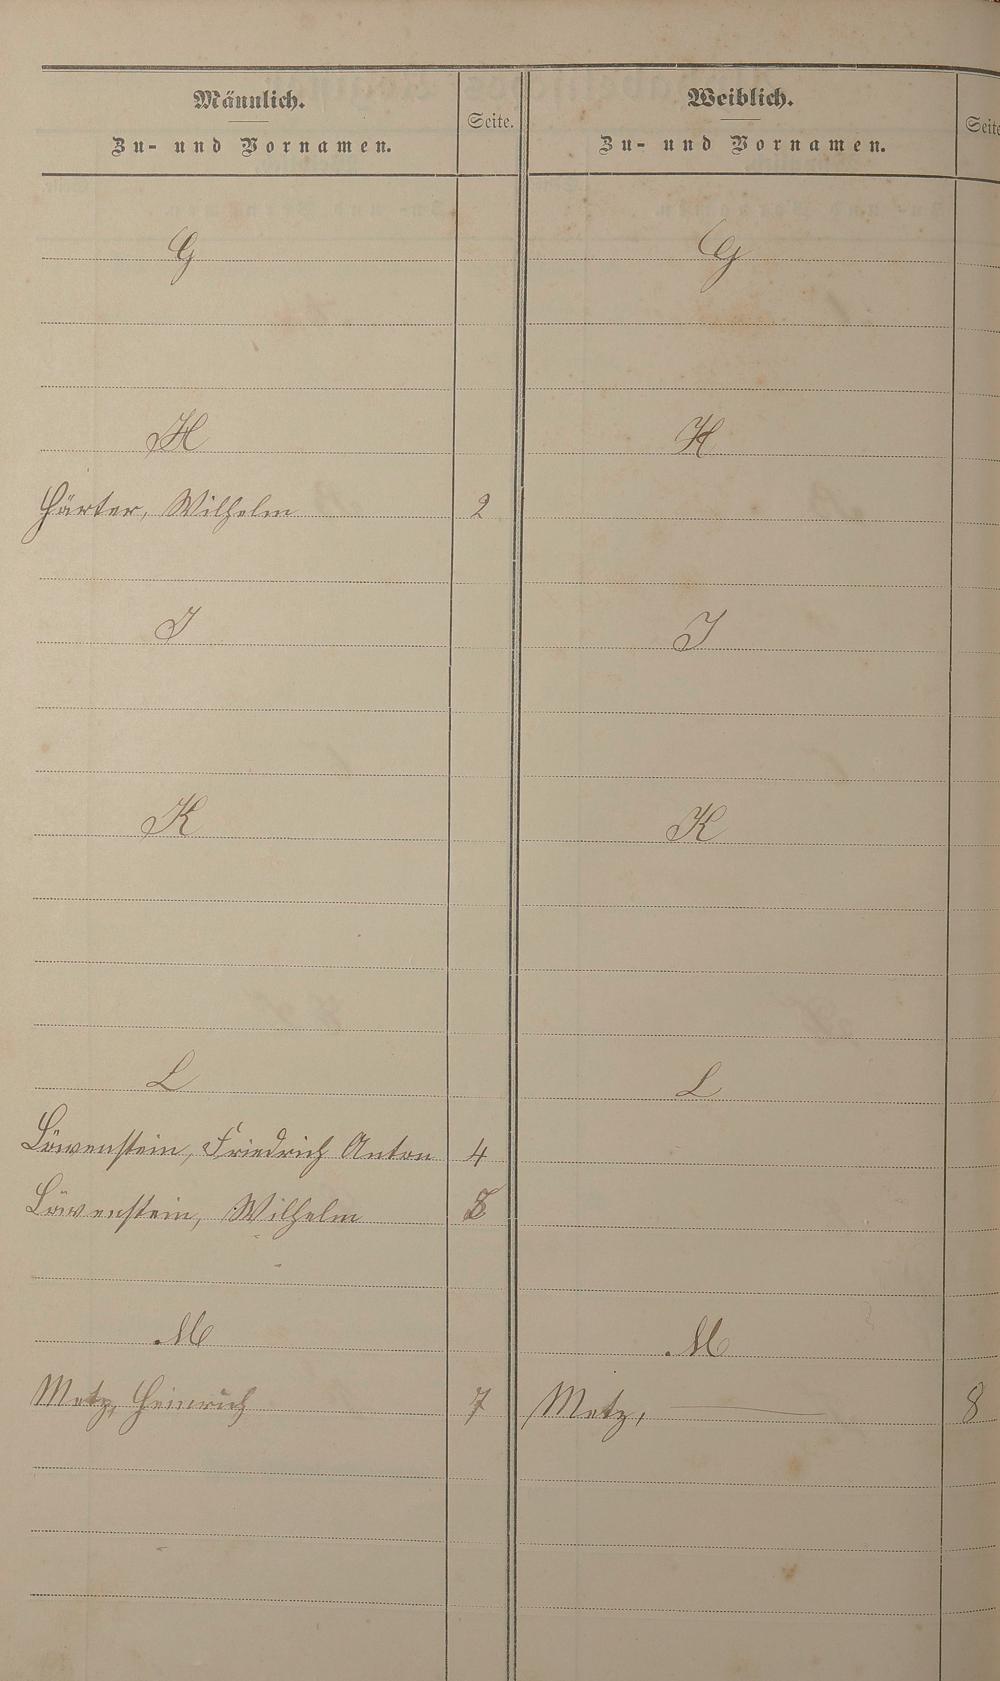 Männlich.
Zu- und Vornamen.
Seite.
Weiblich.
Zu- und Vornamen.
Seite
G
G
H
H
Härter, Wilhelm 2
I
I
K
K
L
L
Löwenstein, Friedrich Anton 4
Löwenstein, Wilhelm
M
M
Metz, Heinrich 7
Metz, 8